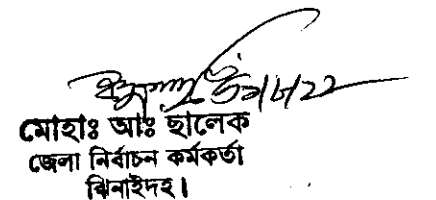 মোহাঃ আঃ ছালেক
জেলা নির্বাচন কর্মকর্তা
ঝিনাইদহ।